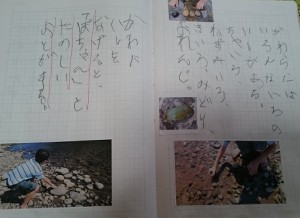 かわらには
いろんないろの
いしがある。
ちゃいろ、
ねずみいろ、
きいろみどり、
おれんじ。
かわに
いしを
なげると、
ぽちゃんと
たのしい
おとがする。